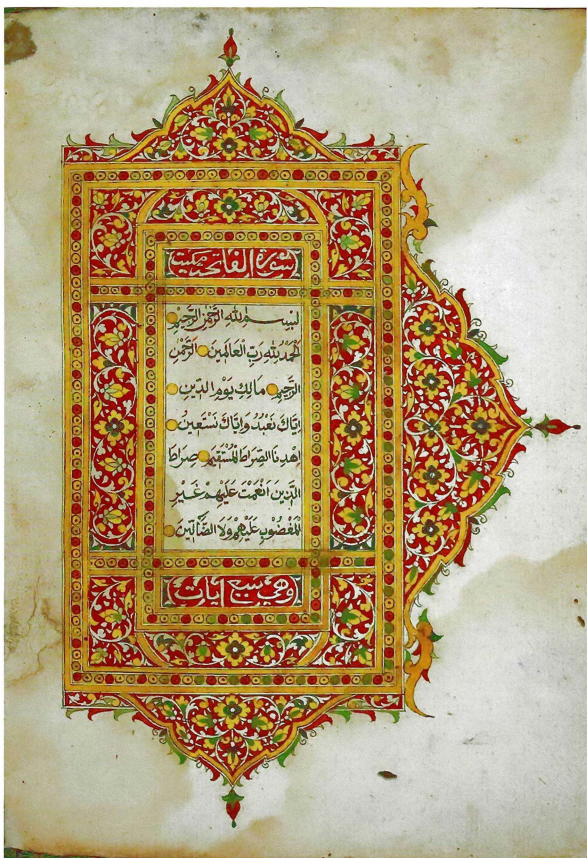 سُوْرَةُ الفَاتِحَة مكية
بِسْمِ اللهِ الرَّحْمٰنِ الرَّحِيْمِ
اَلْحَمْدُ لِلّٰهِ رَبِّ الْعَالَمِيْنَ الرَّحْمٰنِ
الرَّحِيْمِ مَالِكِ يَوْمِ الدِّيْنِ
اِيَّاكَ نَعْبُدُ وَاِيَّاكَ نَسْتَعِيْنُ
اِهْدِنَا الصِّرَاطَ الْمُسْتَقِيْمَ صِرَاطَ
الَّذِيْنَ اَنْعَمْتَ عَلَيْهِمْ غَيْرِ
الْمَغْضُوْبِ عَلَيْهِمْ وَلَا الضَّآلِّيْنَ
وَهِيَ سَبْعُ آيَاتٍ